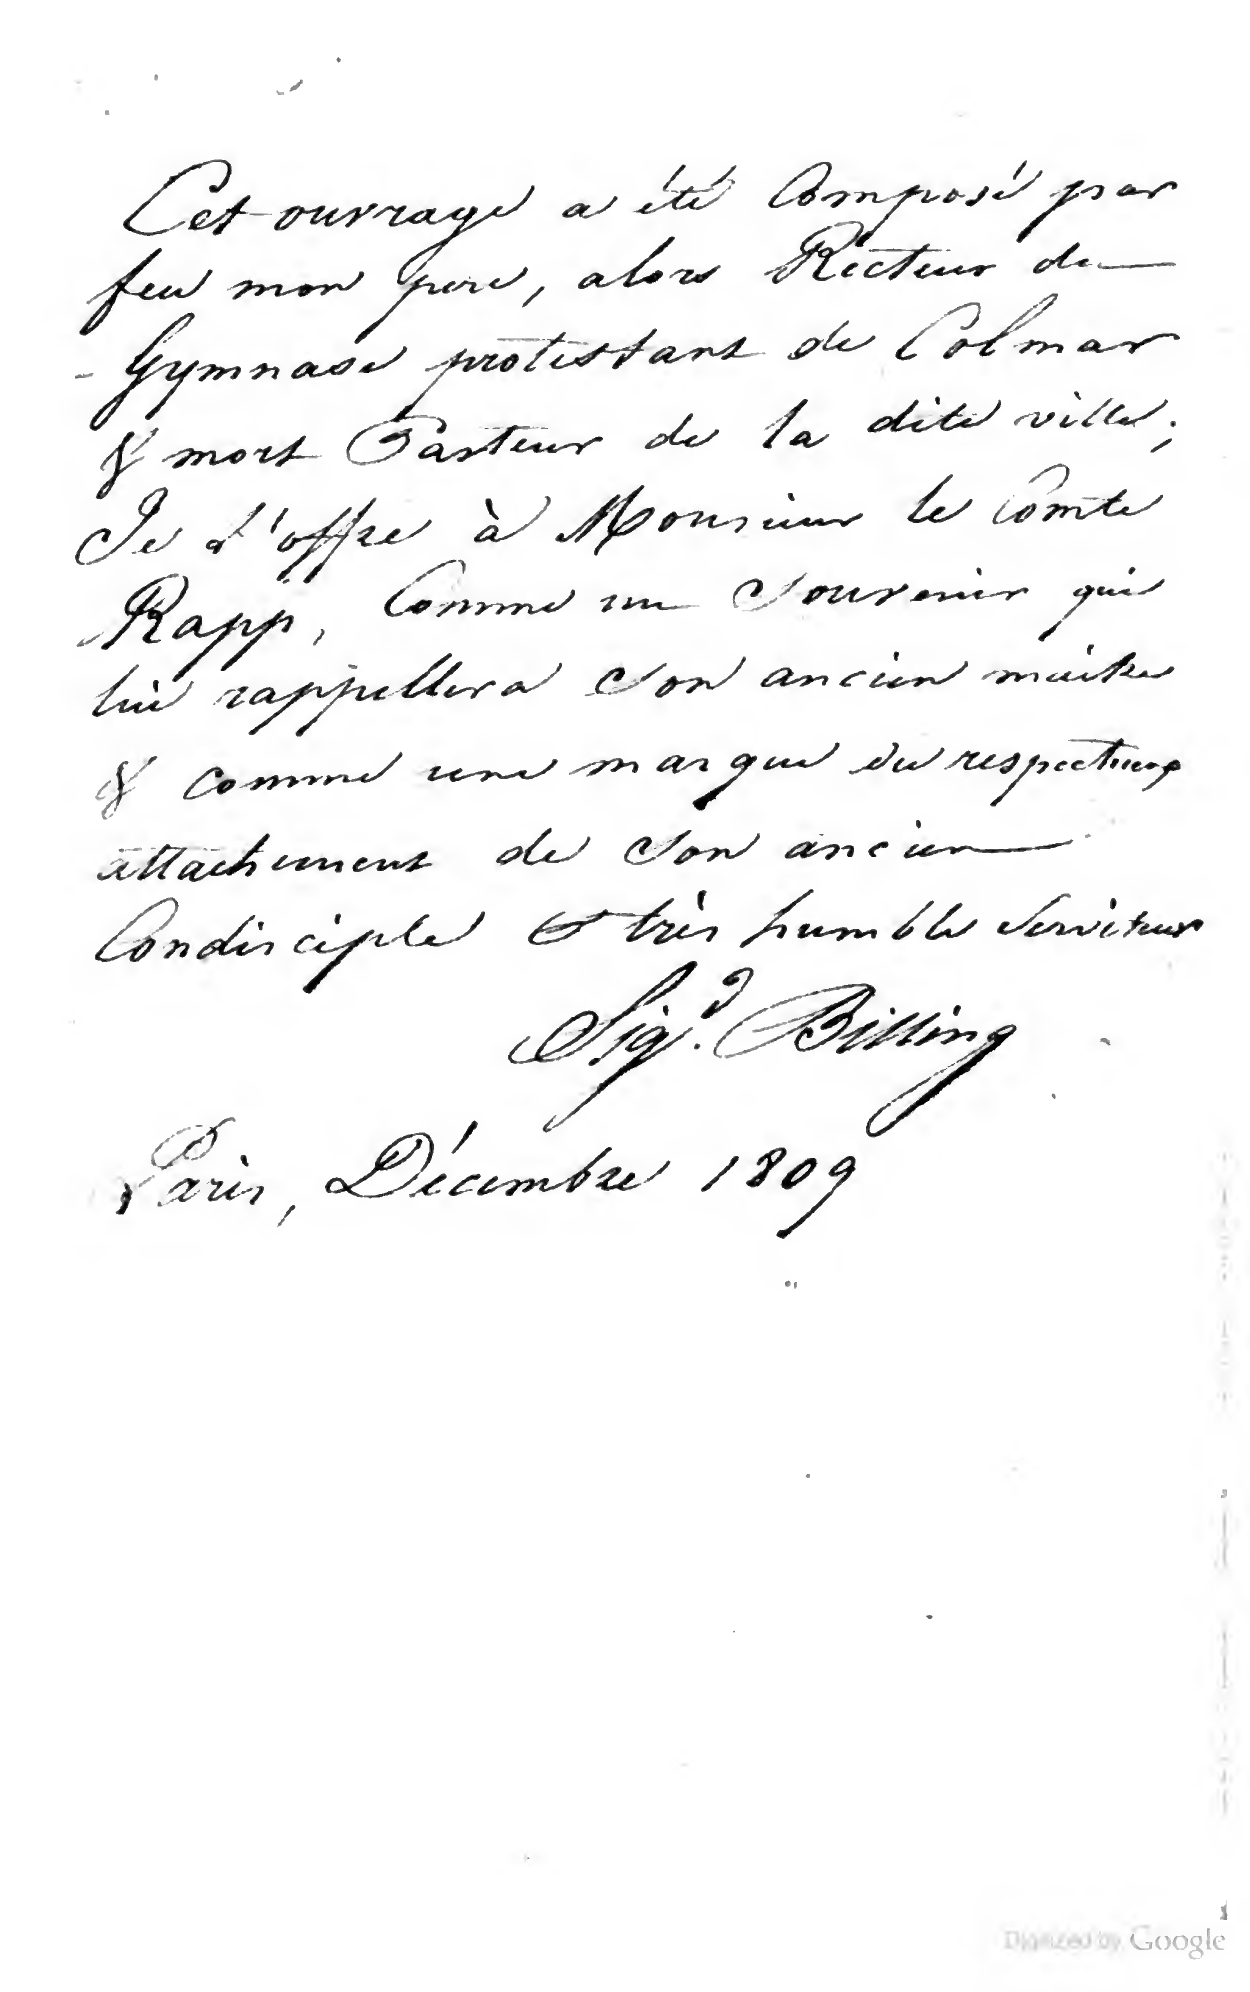 Cet ouvrage a été Composé par
feu mon pere, alors Recteur du
Gymnase protestant de Colmar
& mort Pasteur de la dite ville;
Je l'offre à Monsieur le Comte
Rapp, Comme un Souvenir qui
lui rappellera Son ancien maitre
& comme une marque du respectueux
attachement de Son ancien
Condisciple & très humble Serviteur
Sigd. Billing
Paris, Décembre 1809
Digitized by Google